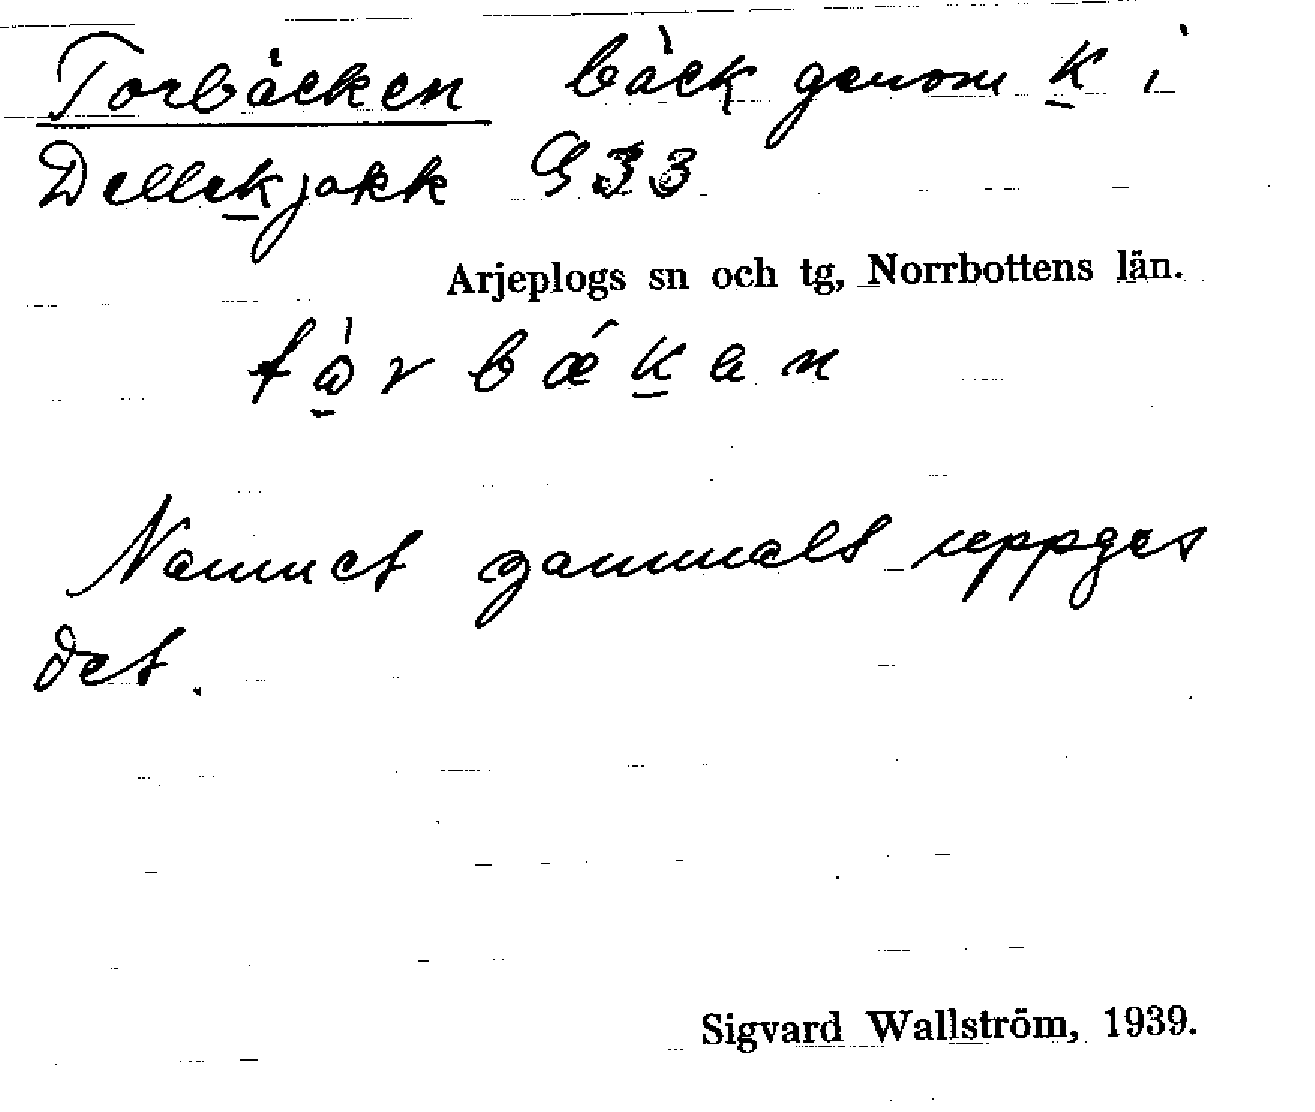 Torbäcken bäck genom k i
Dellekjokk G 33
Arjeplogs sn och tg, Norrbottens län.
Namnet gammalt uppges
det.
Sigvard Wallström, 1939.